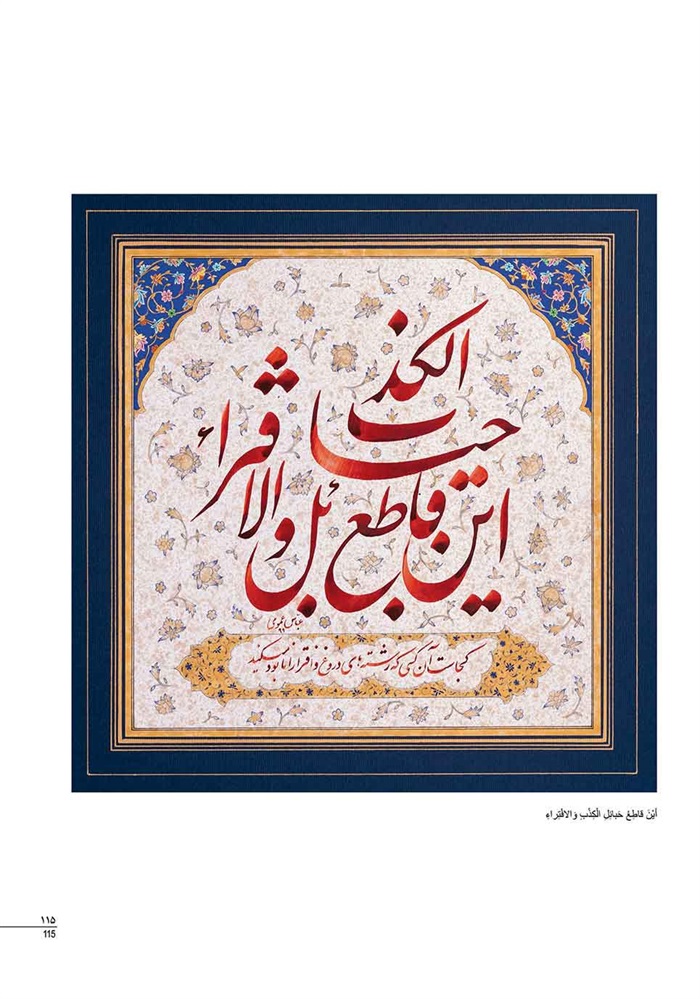 این قاطع حبائل الکذب والافتراء
عباس
کجاست آن کسی که رشته‌های دروغ و افترا را نابود میکند
أَيْنَ قاطِعُ حَبائِلِ الْكِذْبِ وَالافْتِراءِ
۱۱۵
115